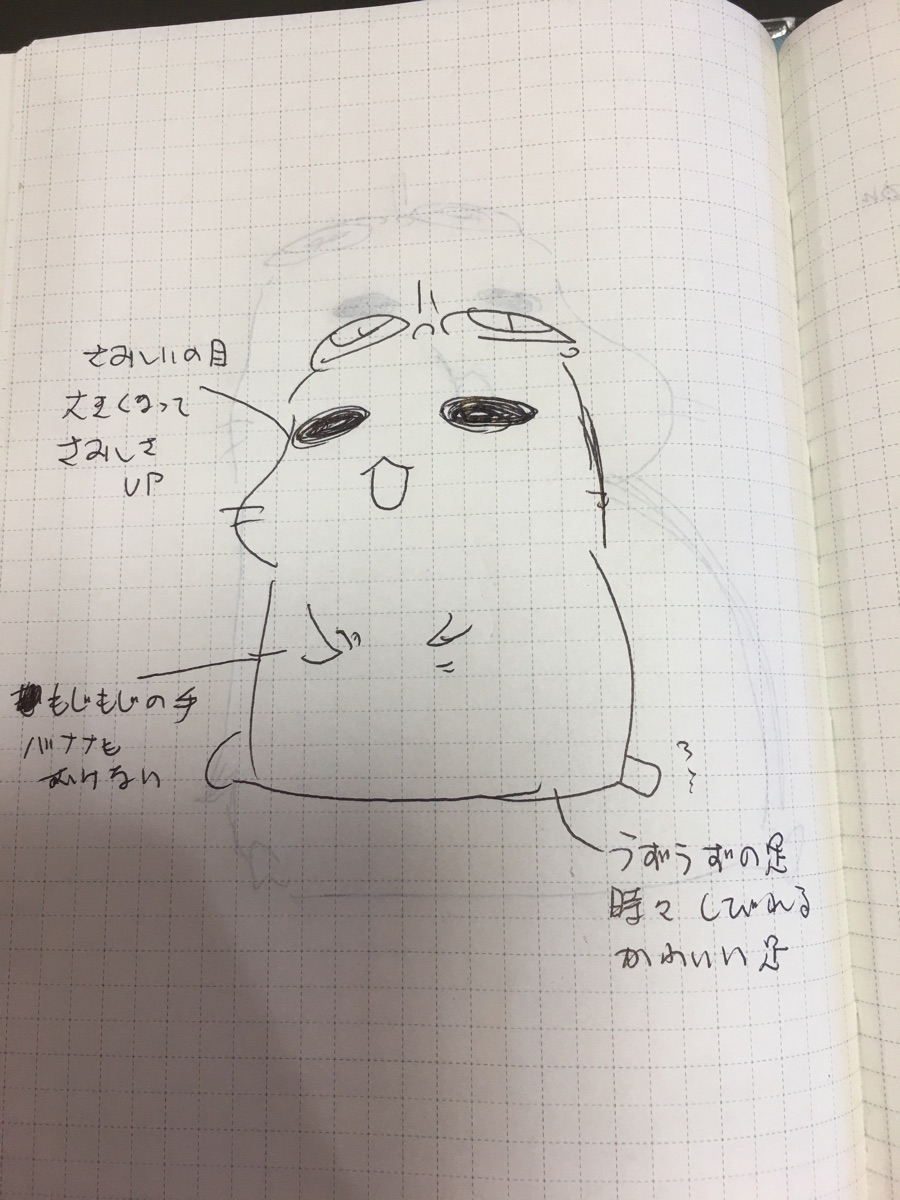 さみしいの目
大きくなって
さみしさ
UP
もじもじの手
バナナも
むけない
うずうずの足
時々しびれる
かわいい足